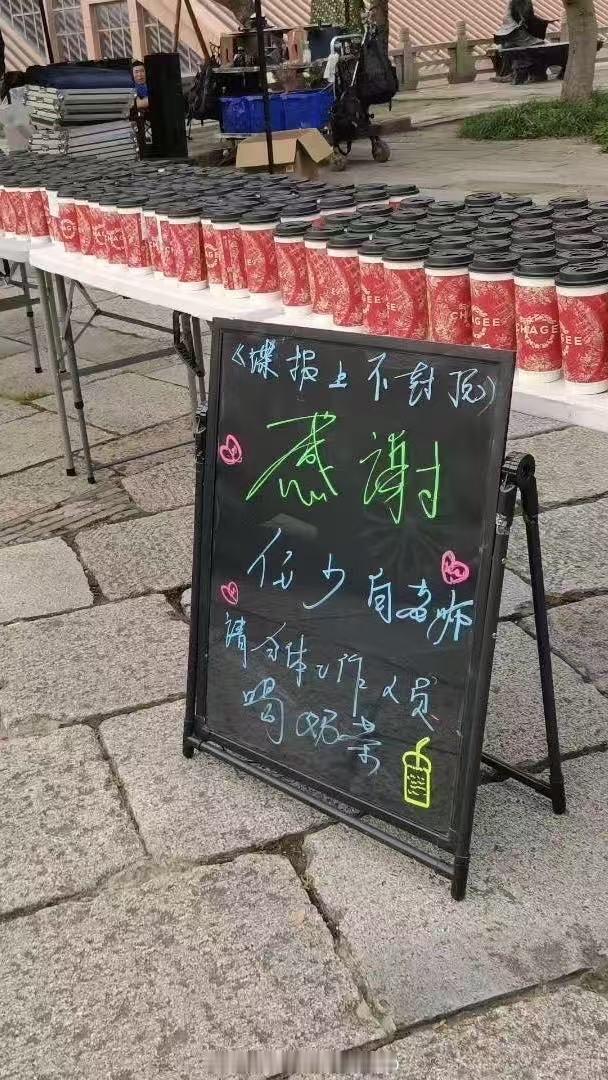 《谍报上不封顶》
感谢
任少白老师
请全体工作人员
喝奶茶
CHAGEE